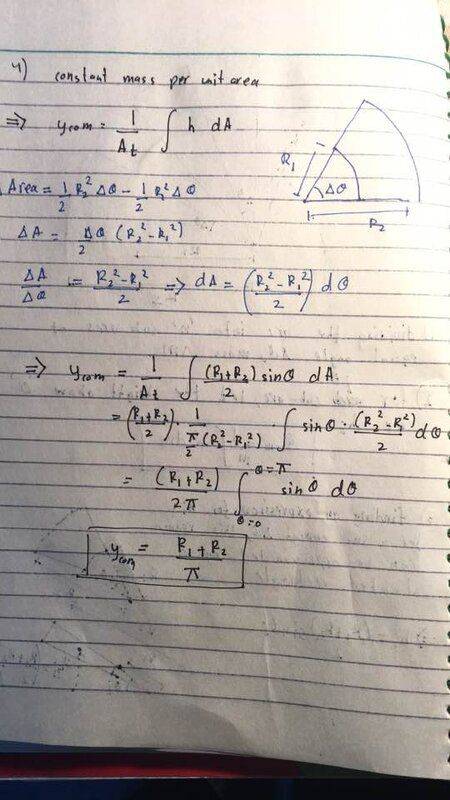 4) constant mass per unit area
⇒ ycom = 1/At ∫ h dA
Area = 1/2 R₂² Δθ - 1/2 R₁² Δθ
ΔA = Δθ/2 (R₂² - R₁²)
ΔA/Δθ = (R₂² - R₁²)/2 ⇒ dA = ((R₂² - R₁²)/2) dθ
R₁
Δθ
R₂
⇒ ycom = 1/At ∫ (R₁+R₂)/2 sinθ dA
= ((R₁+R₂)/2) · 1/(π/2 (R₂² - R₁²)) ∫ sinθ · (R₂² - R²)/2 dθ
= (R₁+R₂)/2π ∫ θ=0 θ=π sinθ dθ
ycom = (R₁+R₂)/π